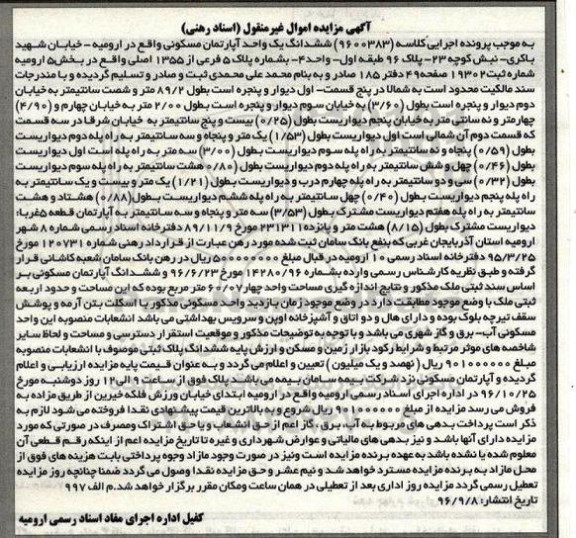 آگهی مزایده اموال غیرمنقول (اسناد رهنی)
به موجب پرونده اجرایی کلاسه (۹۶۰۰۳۸۳) ششدانگ یک واحد آپارتمان مسکونی واقع در ارومیه - خیابان شهید
باکری- نبش کوچه ۲۳- پلاک ۹۶ طبقه اول- واحد ۴- بشماره پلاک ۵ فرعی از ۱۳۵۵ اصلی واقع در بخش ۵ ارومیه
شماره ثبت ۱۹۳۰۲ صفحه ۴۹ دفتر ۱۸۵ صادر و به بنام محمد علی محمدی ثبت و صادر و تسلیم گردیده و با مندرجات
سند مالکیت محدود است به شمالا در پنج قسمت- اول دیوار و پنجره است بطول ۸۹/۲ متر و شصت سانتیمتر به خیابان
دوم دیوار و پنجره است بطول (۳/۶۰) به خیابان سوم دیوار و پنجره است بطول ۲/۰۰ متر به خیابان چهارم و (۴/۹۰)
چهار متر و نه سانتی متر به خیابان پنجم دیواریست بطول (۰/۲۵) بیست و پنج سانتیمتر به خیابان شرقا در سه قسمت
که قسمت دوم آن شمالی است اول دیواریست بطول (۱/۵۳) یک متر و پنجاه و سه سانتیمتر به راه پله دوم دیواریست
بطول (۰/۵۹) پنجاه و نه سانتیمتر به راه پله سوم دیواریست بطول (۳/۰۰) سه متر به راه پله است اول دیواریست
بطول (۰/۴۶) چهل و شش سانتیمتر به راه پله دوم دیواریست بطول (۰/۸۰) هشت سانتیمتر به راه پله سوم دیواریست
بطول (۰/۳۲) سی و دو سانتیمتر به راه پله چهارم درب و دیواریست بطول (۱/۲۱) یک متر و بیست و یک سانتیمتر به
راه پله پنجم دیواریست بطول (۰/۴۰) چهل سانتیمتر به راه پله ششم دیواریست بطول (۰/۸۸) هشتاد و هشت
سانتیمتر به راه پله هفتم دیواریست مشترک بطول (۳/۵۳) سه متر و پنجاه و سه سانتیمتر به آپارتمان قطعه ۵ غربا:
دیواریست مشترک بطول (۸/۱۵) هشت متر و پانزده ۲۳۱۳۱ مورخ ۸۹/۱۱/۹ دفترخانه اسناد رسمی شماره ۸ شهر
ارومیه استان آذربایجان غربی که بنفع بانک سامان ثبت شده مورد رهن عبارت از قرارداد رهنی شماره ۱۲۰۷۳۱ مورخ
۹۵/۳/۲۵ دفترخانه اسناد رسمی ۱۰ ارومیه در قبال مبلغ ۵۰۰۰۰۰۰۰۰ ریال در رهن بانک سامان شعبه کاشانی قرار
گرفته و طبق نظریه کارشناس رسمی وارده بشماره ۱۴۲۸۰/۹۶ مورخ ۹۶/۶/۲۳ و ششدانگ آپارتمان مسکونی بر
اساس سند ثبتی ملک مذکور و نتایج اندازه گیری مساحت واحد چهار ۶۰/۰۷ متر مربع بوده که این مساحت و حدود اربعه
ثبتی ملک با وضع موجود مطابقت دارد در وضع موجود زمان بازدید واحد مسکونی مذکور با اسکلت بتن آرمه و پوشش
سقف تیرچه بلوک بوده و دارای هال و دو اتاق و آشپزخانه اوپن و سرویس بهداشتی می باشد انشعابات منصوبه این واحد
مسکونی آب- برق و گاز شهری می باشد و با توجه به توضیحات مذکور و موقعیت استقرار دسترسی و مساحت و لحاظ سایر
شاخصه های موثر مرتبط و شرایط رکود بازار زمین و مسکن و ارزش پایه ششدانگ پلاک ثبتی موصوف با انشعابات منصوبه
مبلغ ۹۰۱۰۰۰۰۰۰ ریال (نهصد و یک میلیون) تعیین و اعلام می گردد و به عنوان قیمت پایه مزایده ارزیابی و اعلام
گردیده و آپارتمان مسکونی نزد شرکت بیمه سامان بیمه می باشد پلاک فوق از ساعت ۹ الی ۱۲ روز دوشنبه مورخ
۹۶/۱۰/۲۵ در اداره اجرای اسناد رسمی ارومیه واقع در ارومیه ابتدای خیابان ورزش فلکه خیرین از طریق مزاده به
فروش می رسد مزایده از مبلغ ۹۰۱۰۰۰۰۰۰ ریال شروع و به بالاترین قیمت پیشنهادی نقدا فروخته می شود لازم به
ذکر است پرداخت بدهی های مربوط به آب، برق، گاز اعم از حق انشعاب و یا حق اشتراک و مصرف در صورتی که مورد
مزایده دارای آنها باشد و نیز بدهی های مالیاتی و عوارض شهرداری و غیره تا تاریخ مزایده اعم از اینکه رقم قطعی آن
معلوم شده یا نشده باشد به عهده برنده مزایده است ونیز در صورت وجود مازاد وجوه پرداختی بابت هزینه های فوق از
محل مازاد به برنده مزایده مسترد خواهد شد و نیم عشر و حق مزایده نقدا وصول می گردد ضمنا چنانچه روز مزایده
تعطیل رسمی گردد مزایده روز اداری بعد از تعطیلی در همان ساعت ومکان مقرر برگزار خواهد شد. م الف ۹۹۷
تاریخ انتشار: ۹۶/۹/۸
کفیل اداره اجرای مفاد اسناد رسمی ارومیه